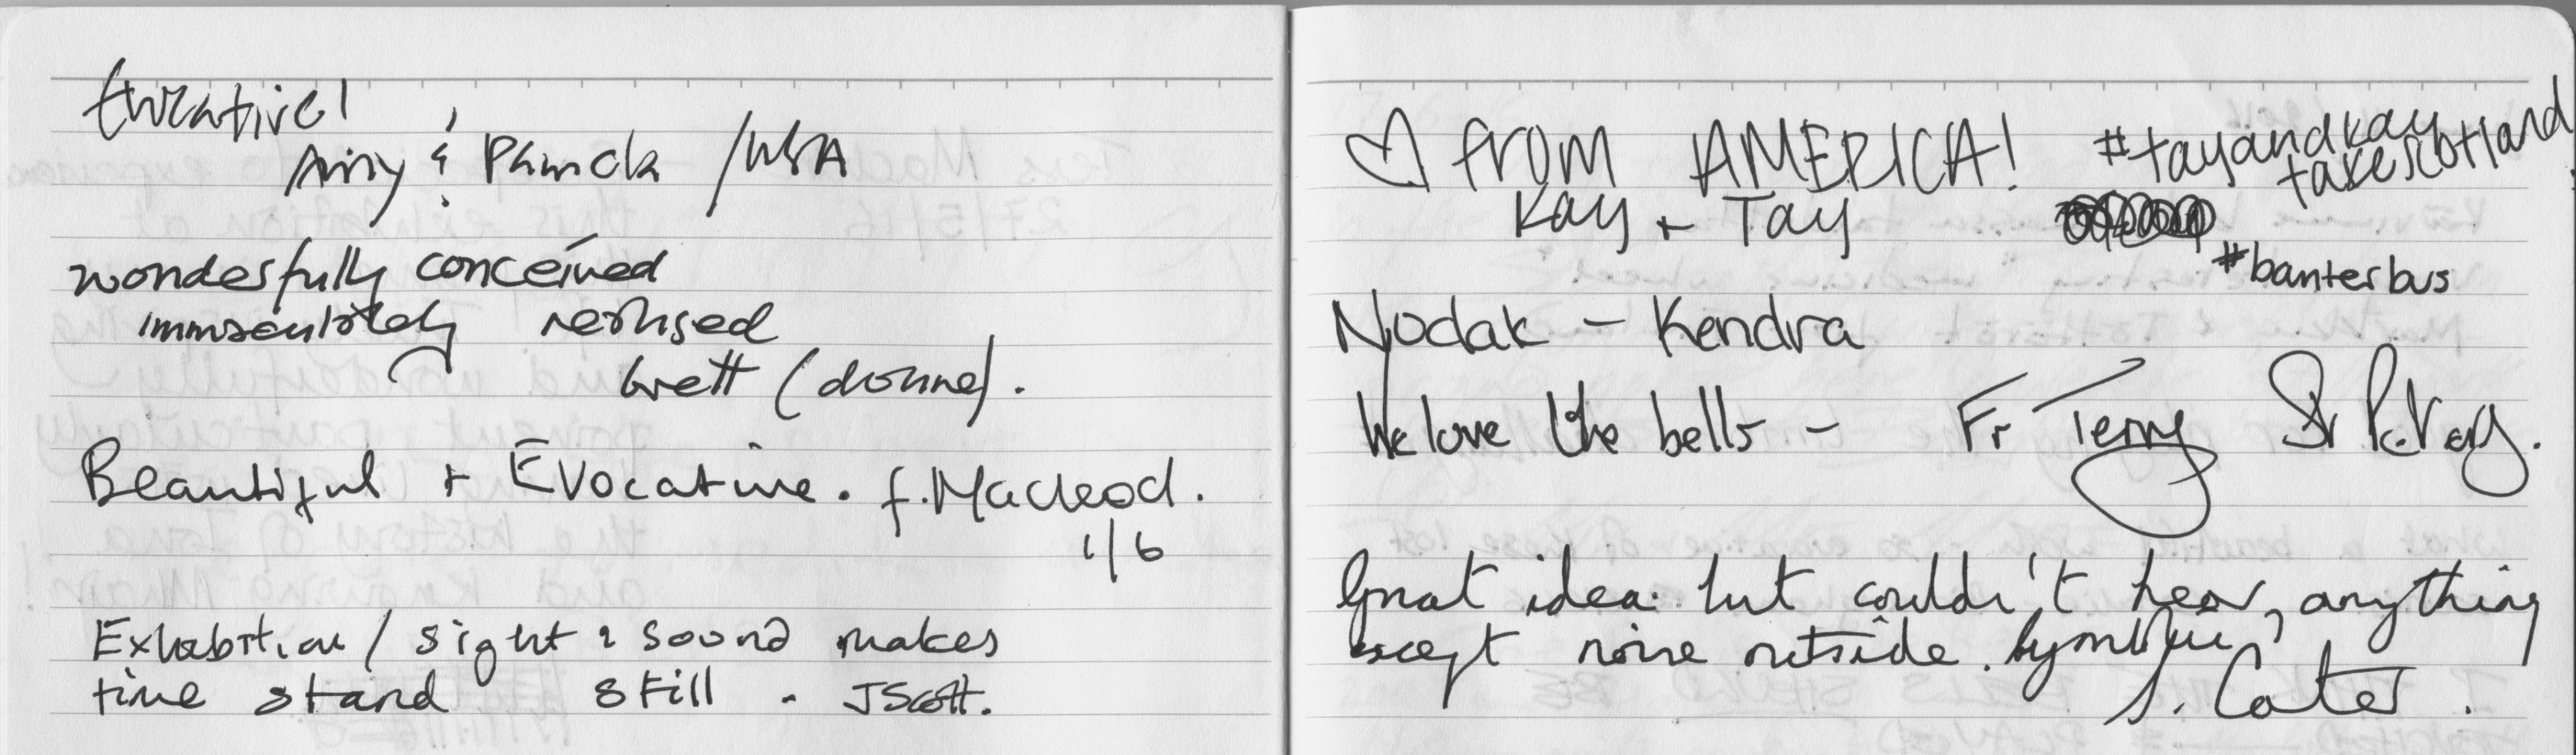 Amy & Patrick / USA
wonderfully conceived
immaculately realised
brett (dionne).
Beautiful + Evocative. f. Macleod.
1/6
Exhabition / sight & sound makes
time stand still. J Scott.
♡ from AMERICA! #tayandkay
takescotland
Kay + Tay
#banterbus
Nodak - Kendra
We love the bells - Fr Terry
Great idea but couldn't hear anything
except noise outside.
S. Cater.